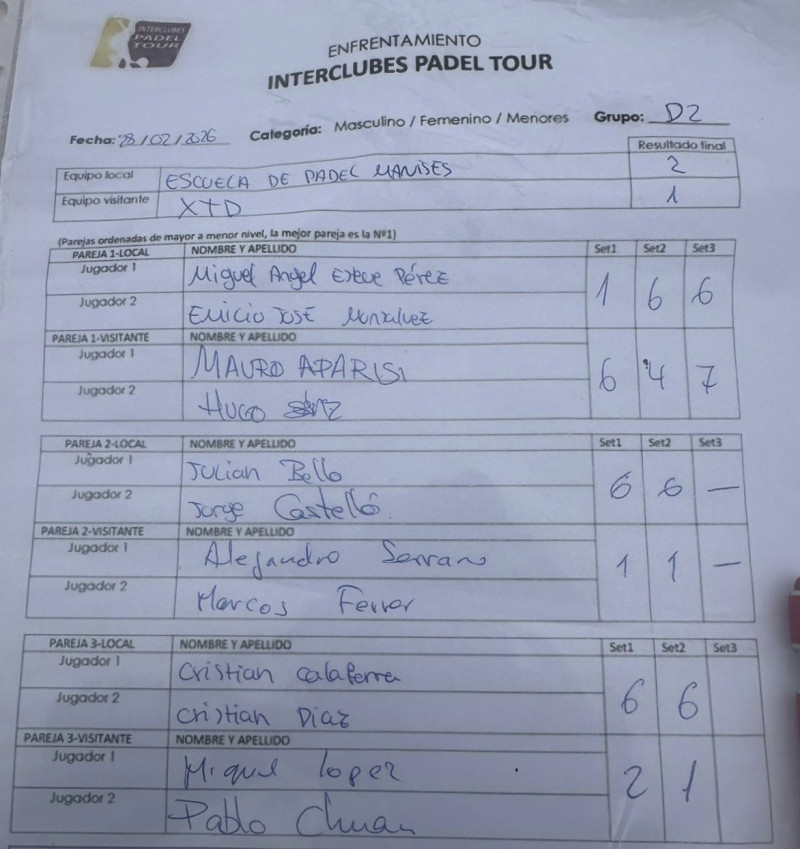 INTERCLUBES
PADEL
TOUR
ENFRENTAMIENTO
INTERCLUBES PADEL TOUR
Fecha: 28/02/2026 Categoría: Masculino / Femenino / Menores Grupo: D2
Resultado final
Equipo local ESCUELA DE PADEL MANISES 2
Equipo visitante XTD 1
(Parejas ordenadas de mayor a menor nivel, la mejor pareja es la Nº1)
PAREJA 1-LOCAL NOMBRE Y APELLIDO Set1 Set2 Set3
Jugador 1 Miguel Angel Esteve Pérez 1 6 6
Jugador 2 Emilio José
PAREJA 1-VISITANTE NOMBRE Y APELLIDO
Jugador 1 MAURO APARISI 6 4 7
Jugador 2 HUGO
PAREJA 2-LOCAL NOMBRE Y APELLIDO Set1 Set2 Set3
Jugador 1 Julian Bello 6 6 —
Jugador 2 Jorge Castelló.
PAREJA 2-VISITANTE NOMBRE Y APELLIDO
Jugador 1 Alejandro Serrano 1 1 —
Jugador 2 Marcos Ferrer
PAREJA 3-LOCAL NOMBRE Y APELLIDO Set1 Set2 Set3
Jugador 1 Cristian Calaferra 6 6
Jugador 2 Cristian Diaz
PAREJA 3-VISITANTE NOMBRE Y APELLIDO
Jugador 1 Miguel lopez 2 1
Jugador 2 Pablo Chuan